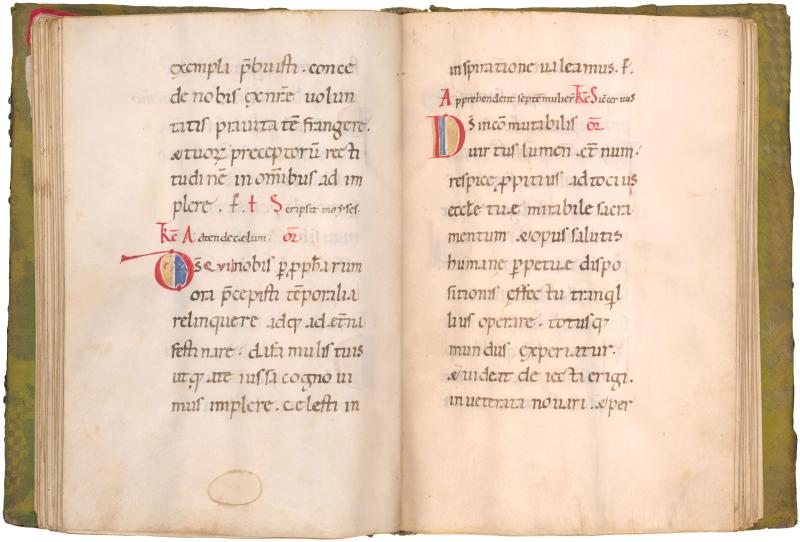 exempli p̄buisti . conce
de nobis & n̄re uolun
tatis prauitatē frangere .
& tuoꝝ preceptorū recti
tudinē in om̄ibus ad im
plere . ꝑ. t̄ Scripsit moyses .
k̄c̄ Adtende cælum . or̄
D̄s qui nobis ꝑ pphāarum
ora p̄cepisti tēporalia
relinquere adq; ad et̄na
festinare : da famulis tuis
ut q̨ a te iussa cognoui
mus implere . celesti in
inspiratione ualeamus . ꝑ.
Apprehendent septē mulier k̄c̄ Sic̄ ceruus
D̄s incōmutabilis or̄
uirtus lumen et̄num .
respice ꝓpitius ad tocius
eccl̄e tue mirabile sacra
mentum & opus salutis
humane ꝑpetue dispo
sitionis effectu tranq̄l
lius operare . totusq;
mundus experiatur .
& uideat deiecti erigi .
inueterata nouari . & per
52